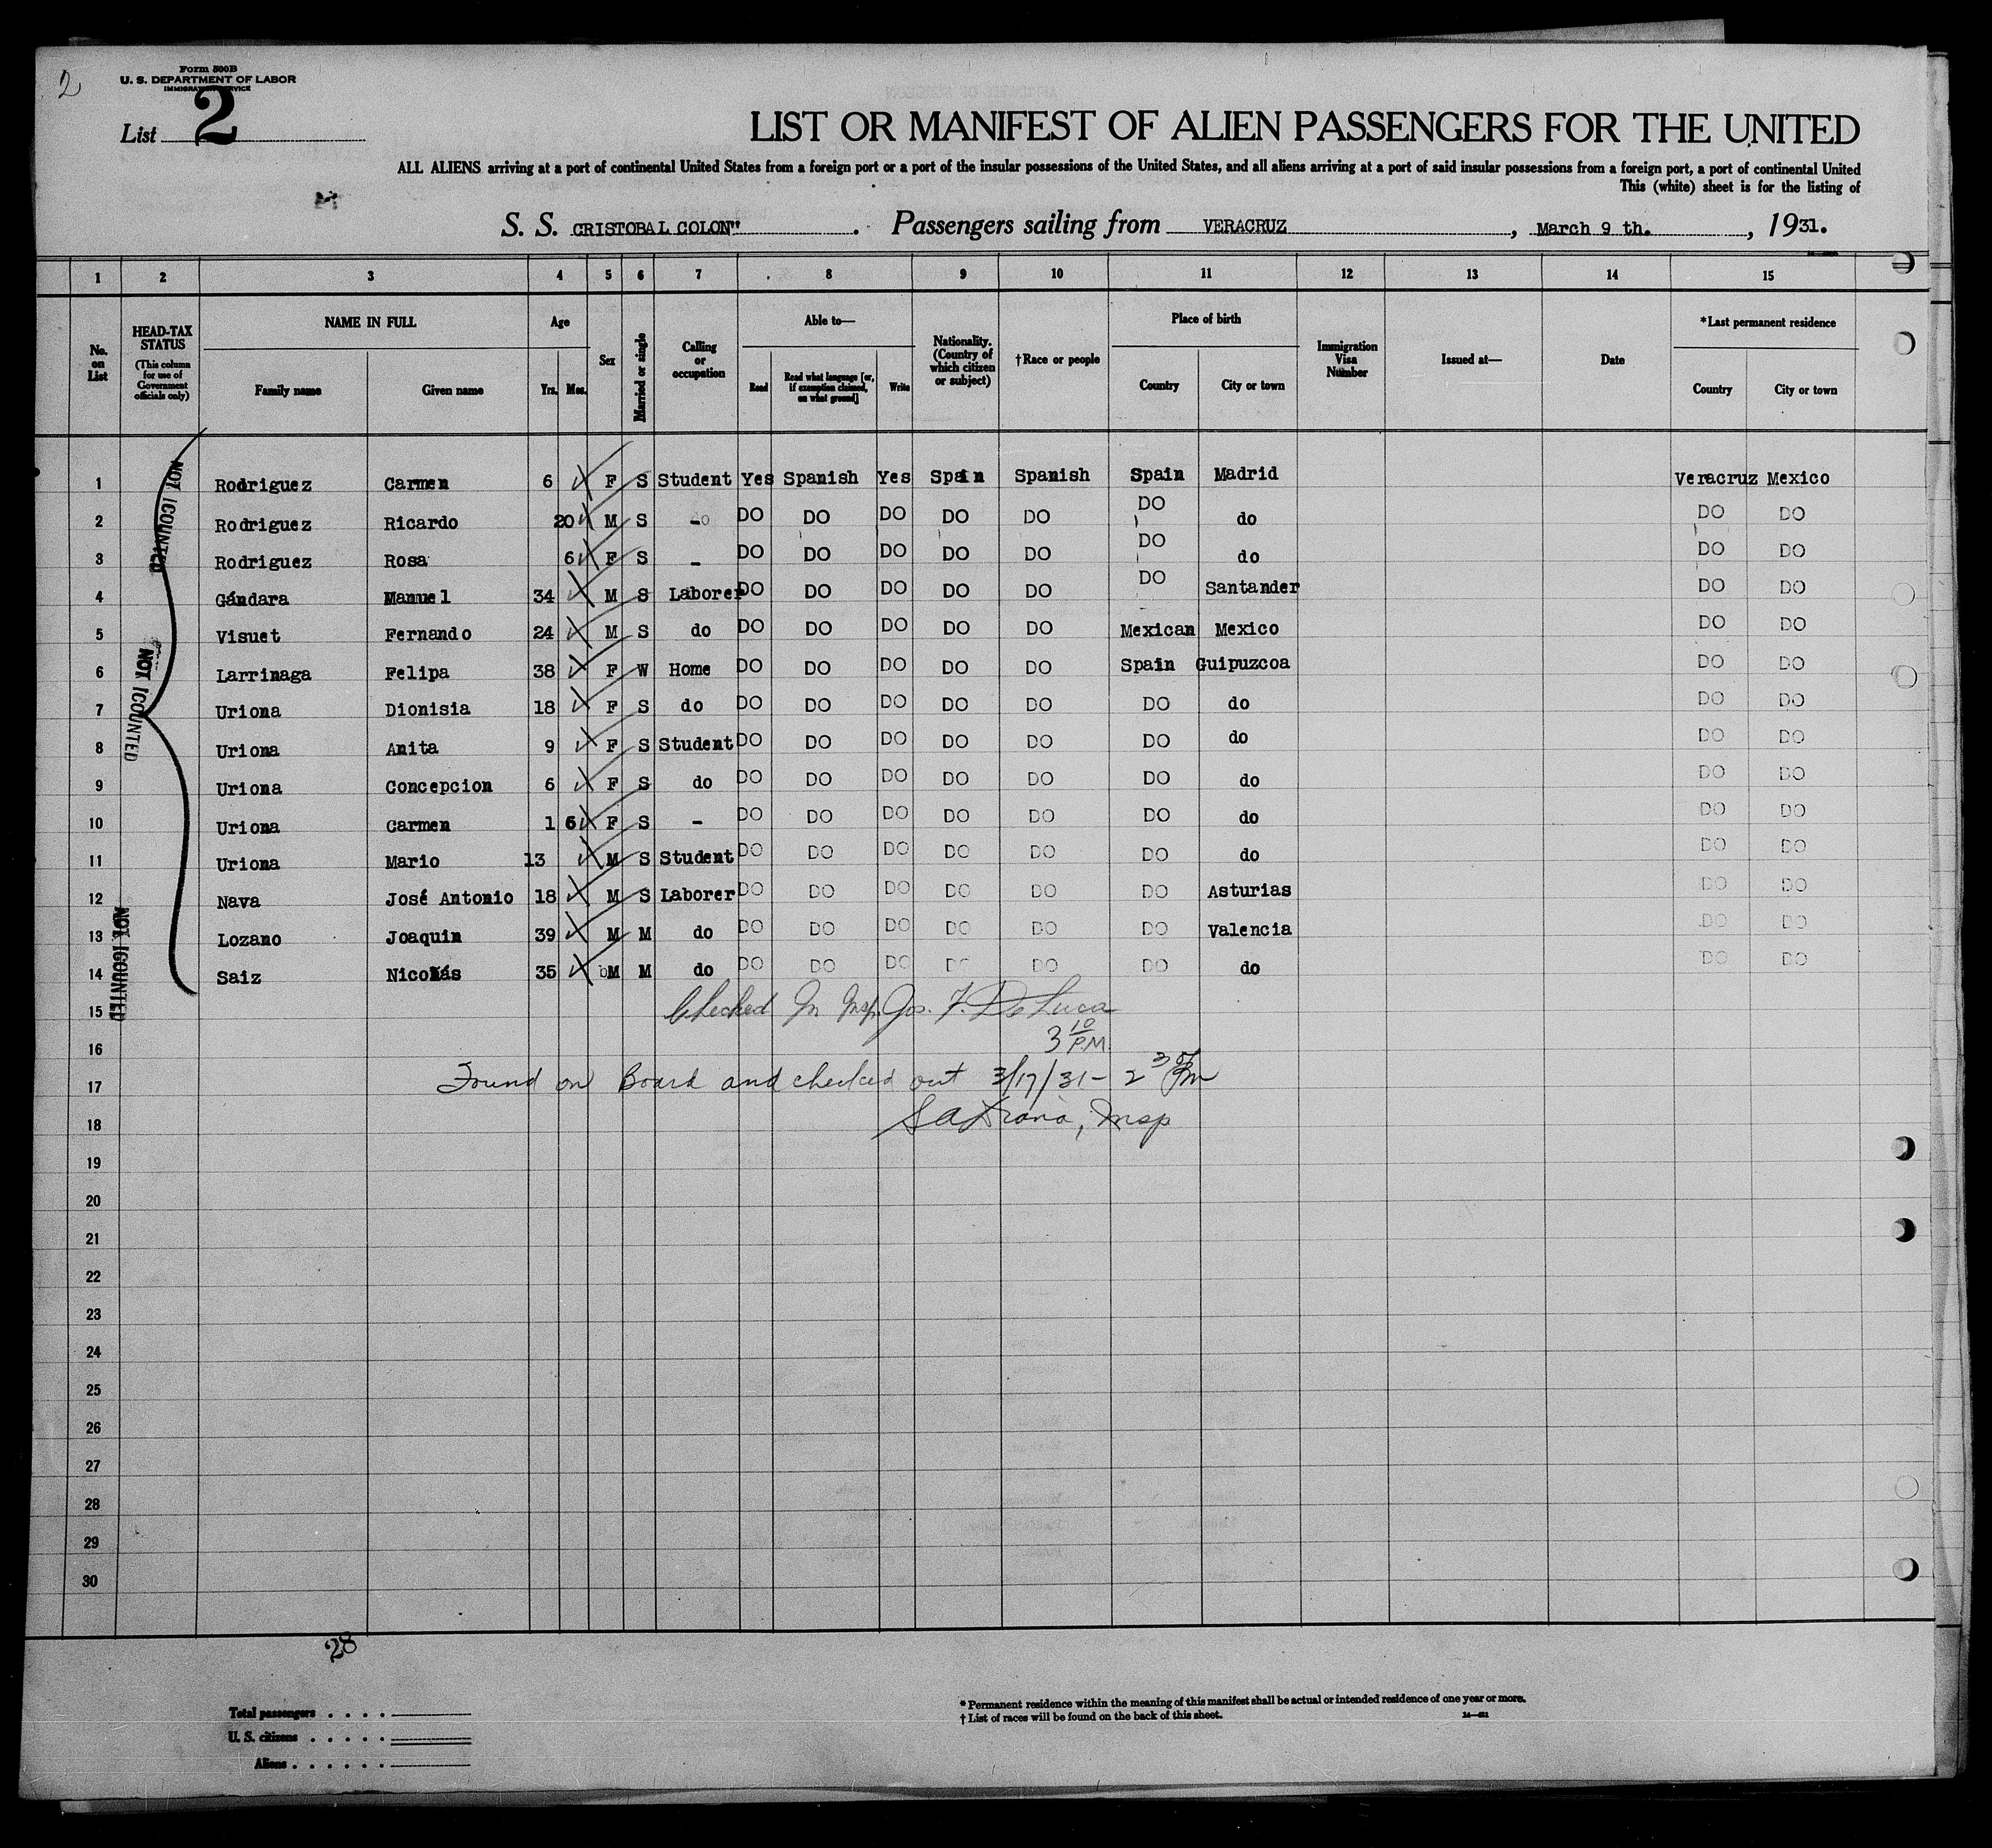 2
Form 500B
U. S. DEPARTMENT OF LABOR
IMMIGRATION SERVICE
List 2
LIST OR MANIFEST OF ALIEN PASSENGERS FOR THE UNITED
ALL ALIENS arriving at a port of continental United States from a foreign port or a port of the insular possessions of the United States, and all aliens arriving at a port of said insular possessions from a foreign port, a port of continental United
This (white) sheet is for the listing of
S. S. CRISTOBAL COLON" . Passengers sailing from VERACRUZ , March 9 th. , 1931.
1 2 3 4 5 6 7 8 9 10 11 12 13 14 15
No. on List
HEAD-TAX STATUS (This column for use of Government officials only)
NAME IN FULL
Family name Given name
Age
Yrs. Mos.
Sex
Married or single
Calling or occupation
Able to—
Read Read what language [or, if exemption claimed, on what ground] Write
Nationality. (Country of which citizen or subject)
†Race or people
Place of birth
Country City or town
Immigration Visa Number
Issued at—
Date
*Last permanent residence
Country City or town
NOT COUNTED
NOT COUNTED
NOT COUNTED
1 Rodriguez Carmen 6 F S Student Yes Spanish Yes Spain Spanish Spain Madrid Veracruz Mexico
2 Rodriguez Ricardo 20 M S - do DO DO DO DO DO DO do DO DO
3 Rodriguez Rosa 6 F S - DO DO DO DO DO DO do DO DO
4 Gándara Manuel 34 M S Laborer DO DO DO DO DO DO Santander DO DO
5 Visuet Fernando 24 M S do DO DO DO DO DO Mexican Mexico DO DO
6 Larrinaga Felipa 38 F W Home DO DO DO DO DO Spain Guipuzcoa DO DO
7 Uriona Dionisia 18 F S do DO DO DO DO DO DO do DO DO
8 Uriona Anita 9 F S Student DO DO DO DO DO DO do DO DO
9 Uriona Concepcion 6 F S do DO DO DO DO DO DO do DO DO
10 Uriona Carmen 1 6 F S - DO DO DO DO DO DO do DO DO
11 Uriona Mario 13 M S Student DO DO DO DO DO DO do DO DO
12 Nava José Antonio 18 M S Laborer DO DO DO DO DO DO Asturias DO DO
13 Lozano Joaquin 39 M M do DO DO DO DO DO DO Valencia DO DO
14 Saiz Nicolás 35 M M do DO DO DO DO DO DO do DO DO
15 Checked In Insp. Jos. F. De Luca
16 3 10 P.M.
17 Found on Board and checked out 3/17/31 - 2 30 Pm
18 Insp
19
20
21
22
23
24
25
26
27
28
29
30
28
Total passengers
U. S. citizens
Aliens
* Permanent residence within the meaning of this manifest shall be actual or intended residence of one year or more.
† List of races will be found on the back of this sheet.